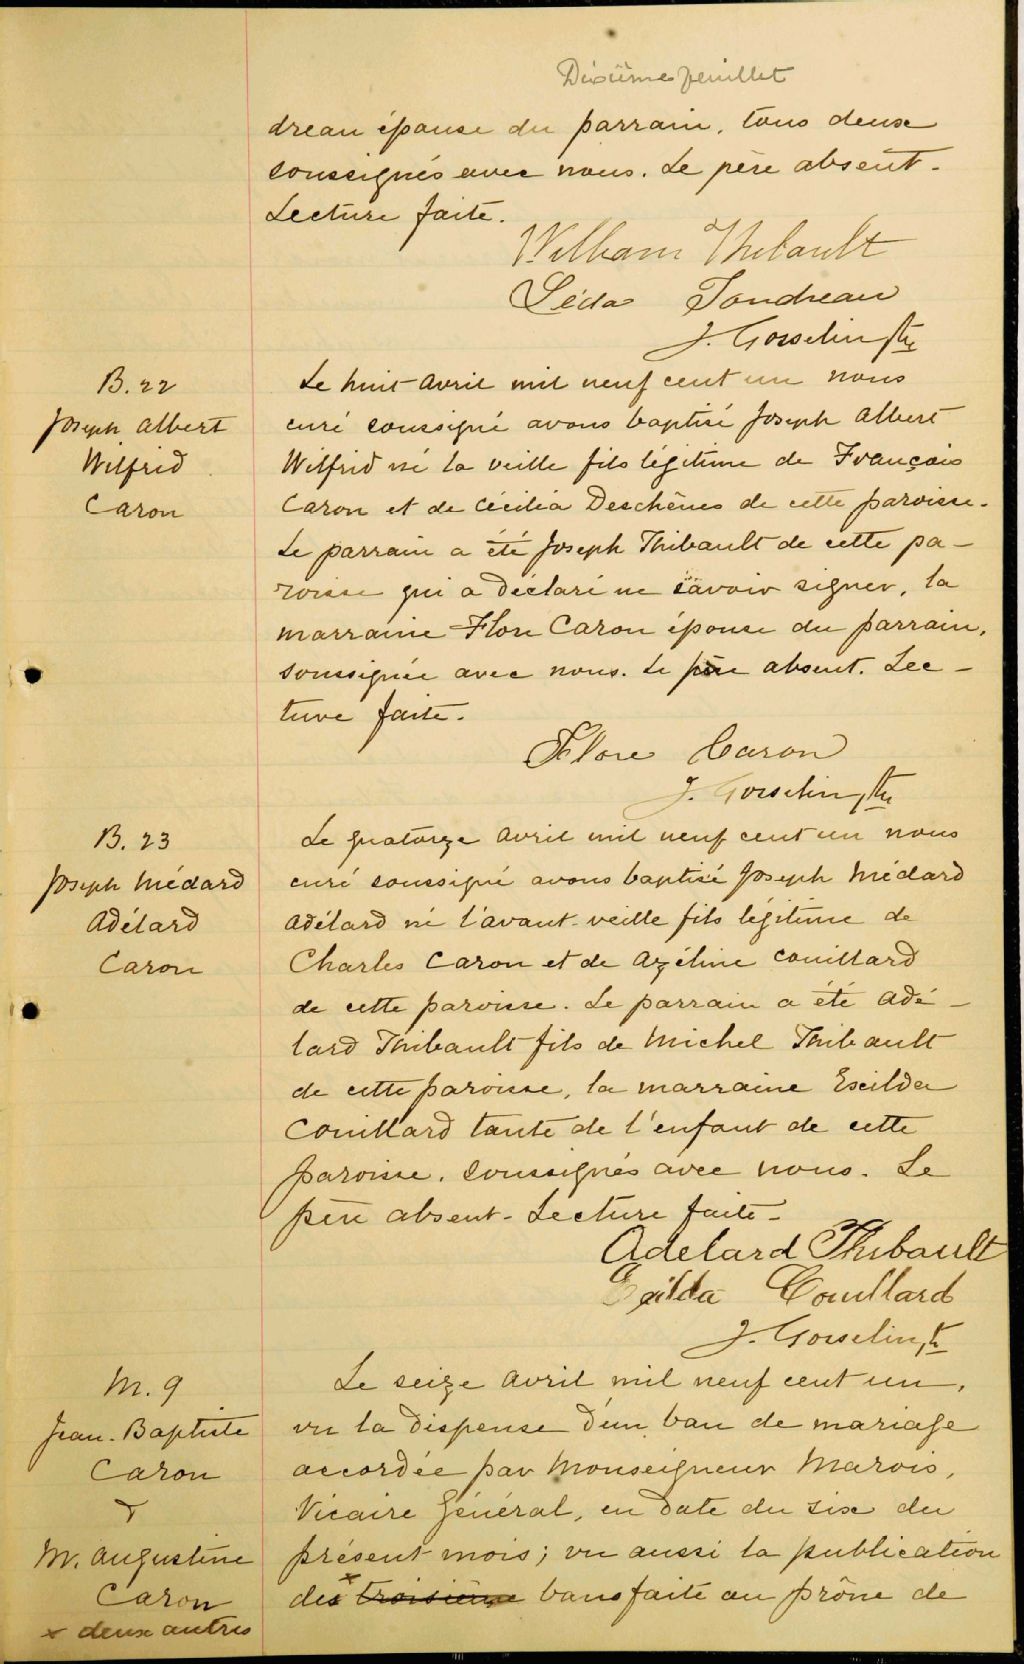 Dixième feuillet
dreau épouse du parrain, tous deux
soussignés avec nous. Le père absent.
Lecture faite.
William Thibault
Léda Tondreau
J. Gosselin Ptre
B. 22
Joseph Albert
Wilfrid
Caron
Le huit avril mil neuf cent un nous
curé soussigné avons baptisé Joseph Albert
Wilfrid né la veille fils légitime de François
Caron et de Cécilia Deschênes de cette paroisse.
Le parrain a été Joseph Thibault de cette pa-
roisse qui a déclaré ne savoir signer, la
marraine Flore Caron épouse du parrain,
soussignée avec nous. Le père absent. Lec-
ture faite.
Flore Caron
J. Gosselin, Ptre
B. 23
Joseph Médard
Adélard
Caron
Le quatorze avril mil neuf cent un nous
curé soussigné avons baptisé Joseph Médard
Adélard né l'avant-veille fils légitime de
Charles Caron et de Azéline Couillard
de cette paroisse. Le parrain a été Adé-
lard Thibault fils de Michel Thibault
de cette paroisse, la marraine Exilda
Couillard tante de l'enfant de cette
paroisse. soussignés avec nous. Le
père absent. Lecture faite.
Adelard Thibault
Exilda Couillard
J. Gosselin, Ptre
M. 9
Jean-Baptiste
Caron
&
M. Augustine
Caron
x deux autres
Le seize avril mil neuf cent un,
vu la dispense d'un ban de mariage
accordée par Monseigneur Marois,
Vicaire Général, en date du six du
présent mois; vu aussi la publication
des x troisième bans faite au prône de